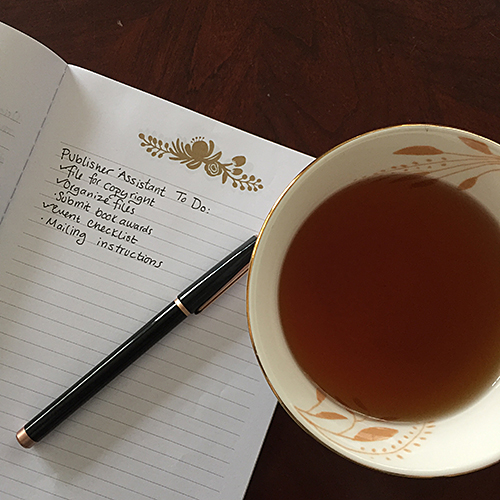 Publisher Assistant To Do:
✓File for copyright
✓Organize files
·Submit book awards
✓event checklist
·Mailing instructions